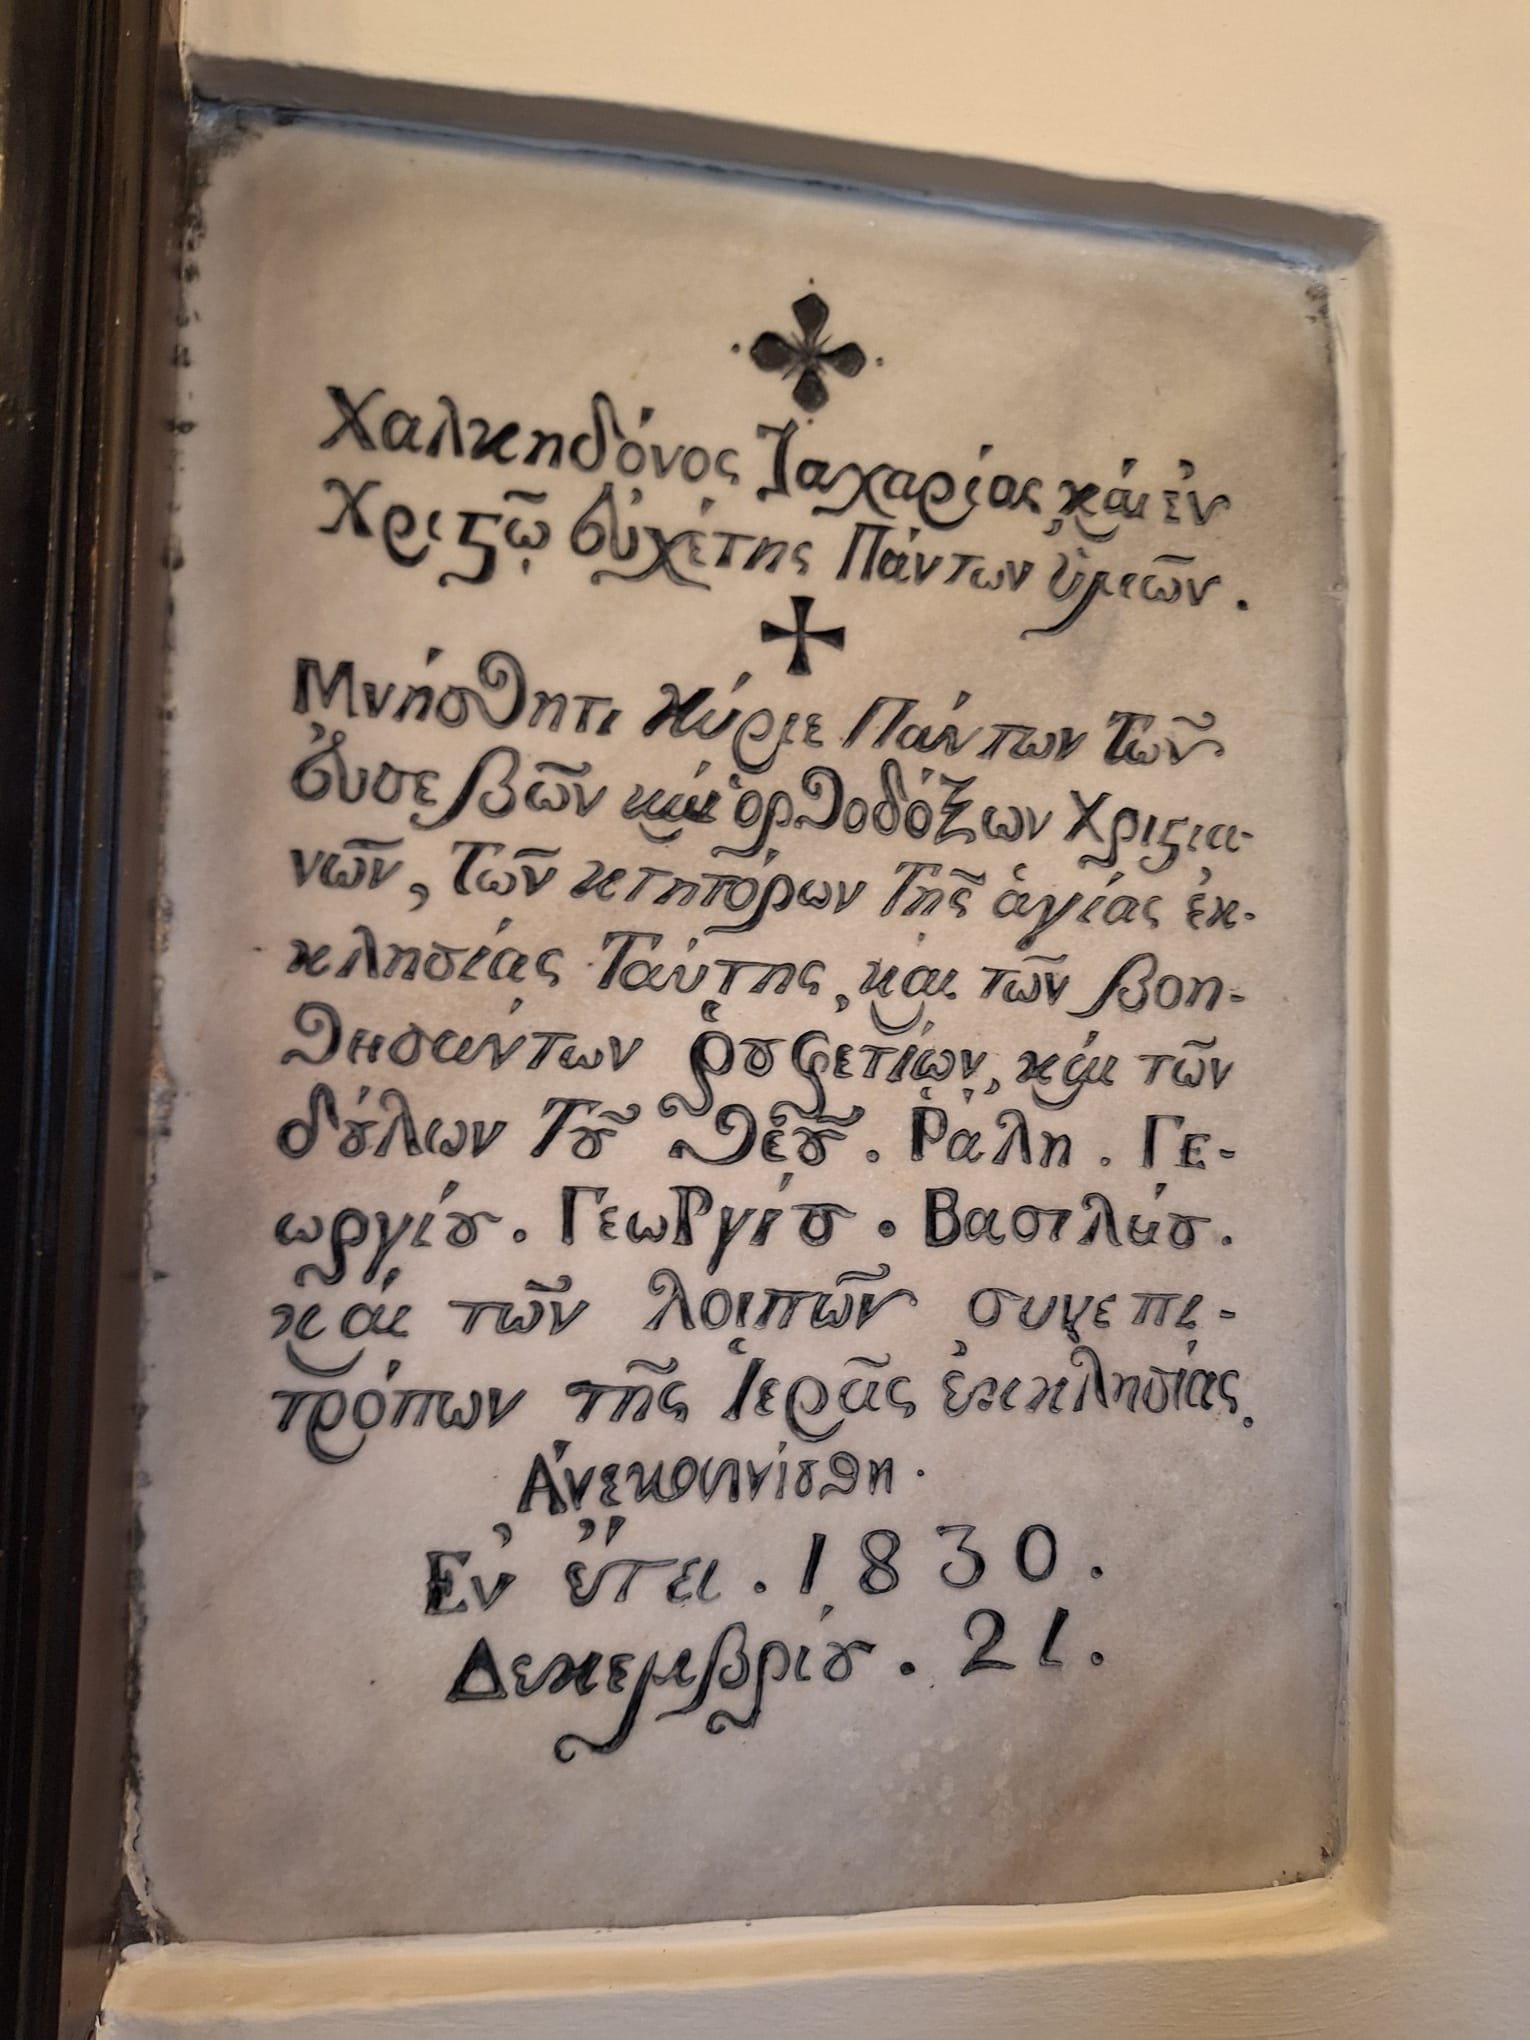 Χαλκηδόνος Ζαχαρίας καὶ ἐν
Χριϛῷ εὐχέτης Πάντων ὑμῶν.
Μνήσθητι Κύριε Πάντων Τῶν
ἐυσεβῶν καὶ ὀρθοδόξων Χριϛια-
νῶν, Τῶν κτητόρων Τῆς ἁγίας ἐκ-
κλησίας Ταύτης, καὶ τῶν βοη-
θησάντων ῥουφετίων, καὶ τῶν
δȣ́λων Τȣ͂ Θεȣ͂. Ῥάλη. Γε-
ωργίȣ. ΓεωΡγίȣ. Βασιλείȣ.
καὶ τῶν λοιπῶν συνεπι-
τρόπων τῆς Ἱερᾶς ἐκκλησίας.
Ἀνεκαινίσθη.
Ἐν ἔτει. 1830.
Δεκεμβρίȣ. 21.